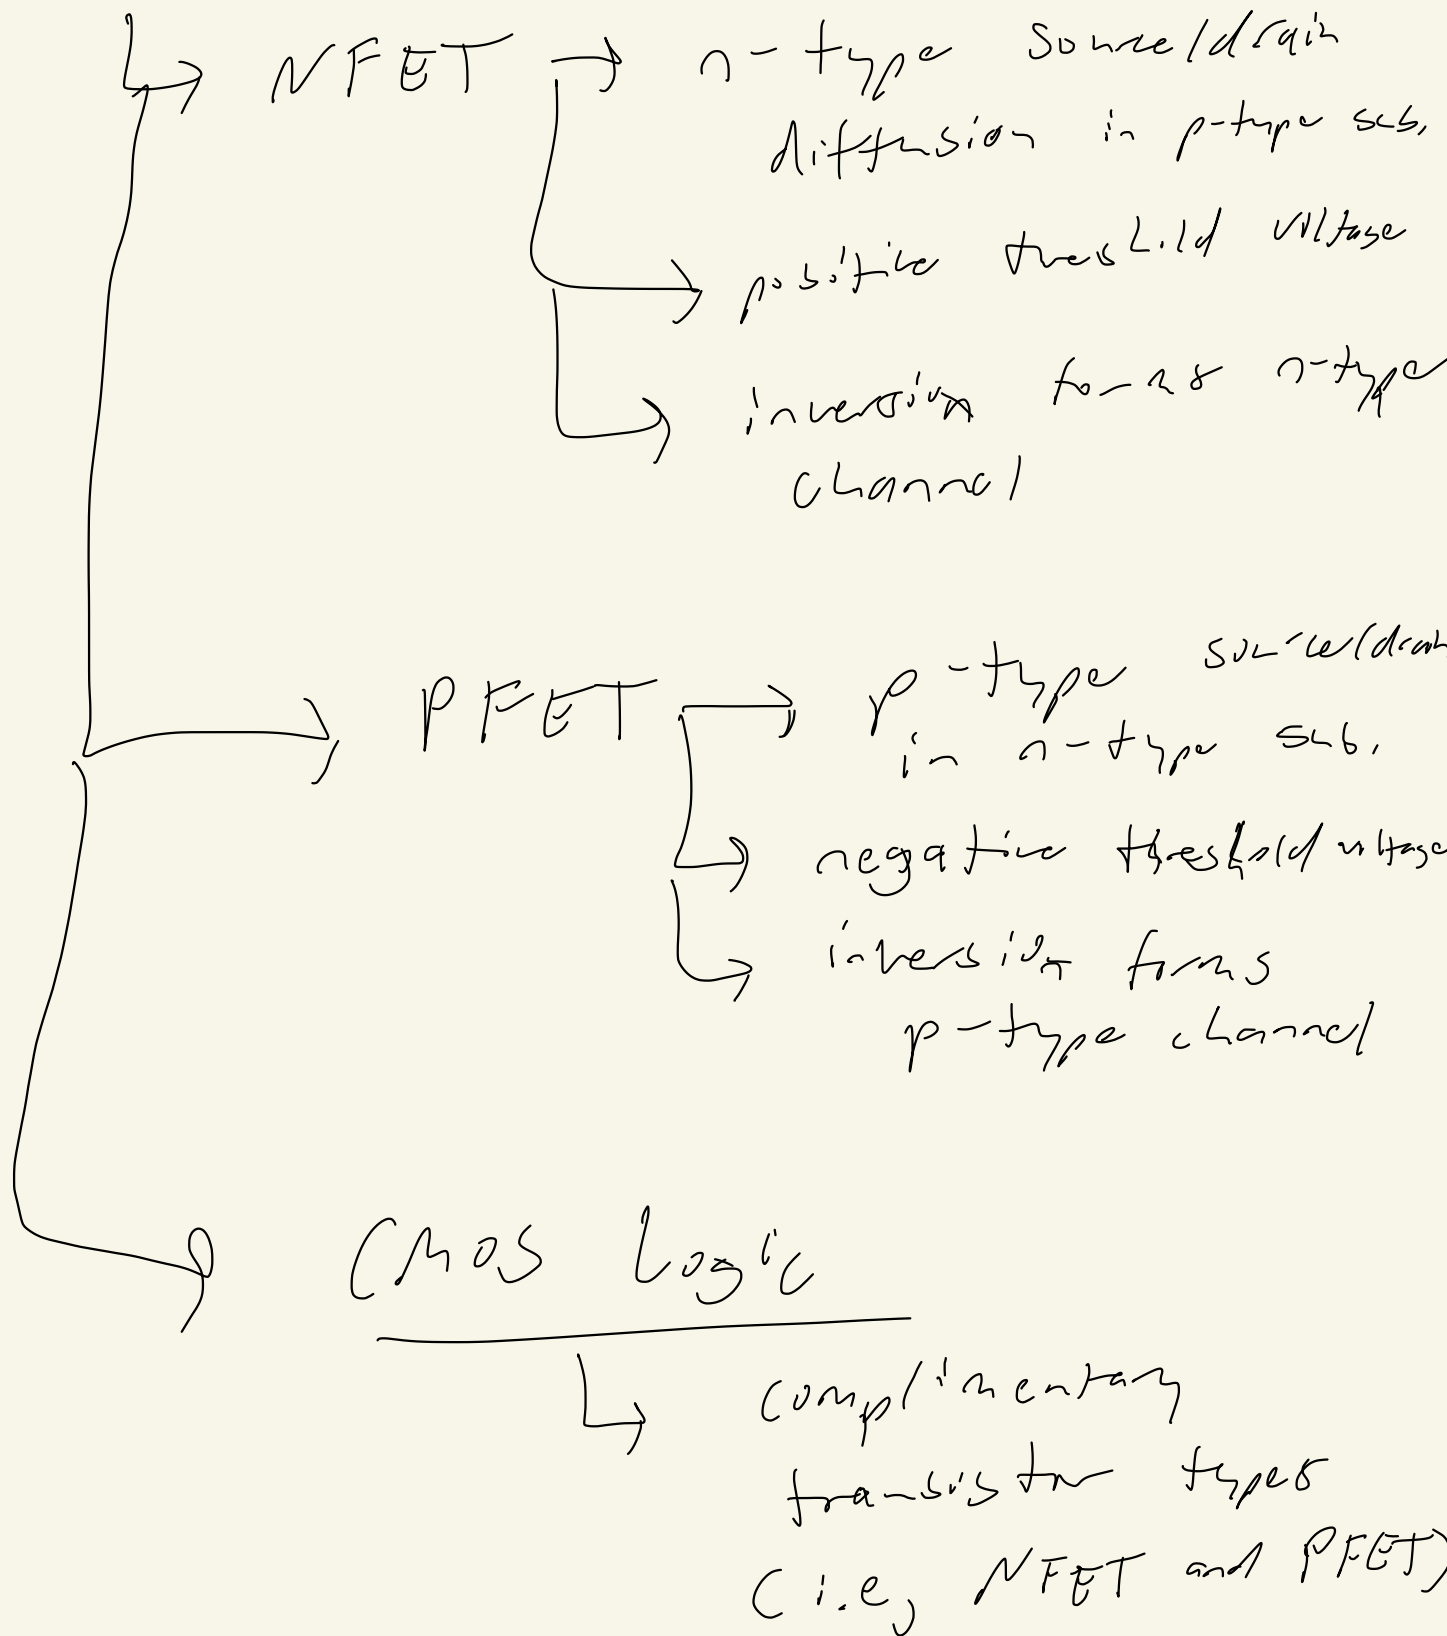 NFET → n-type source/drain
diffusion in p-type sub.
positive treshold voltage
inversion forms n-type
channel
PFET → p-type source/drain
in n-type sub.
negative threshold voltage
inversion forms
p-type channel
CMOS Logic
complimentary
transistor types
(i.e, NFET and PFET)